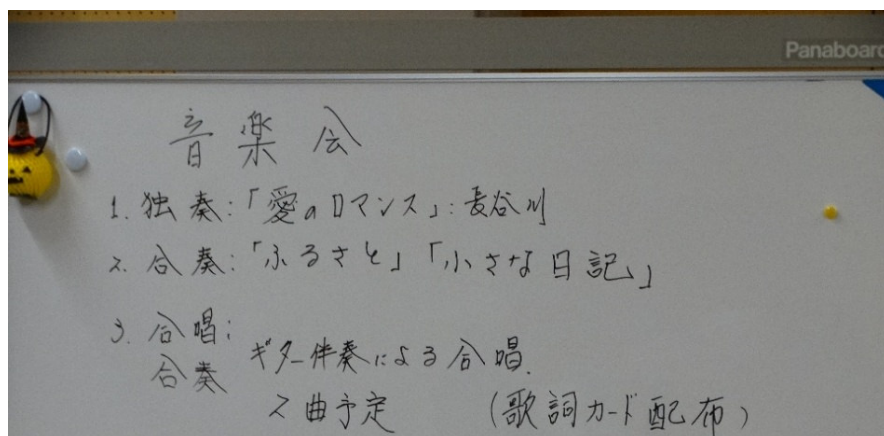 Panaboard
音楽会
1. 独奏:「愛のロマンス」: 長谷川
2. 合奏:「ふるさと」「小さな日記」
3. 合唱:
合奏 ギター伴奏による合唱.
2曲予定 (歌詞カード配布)